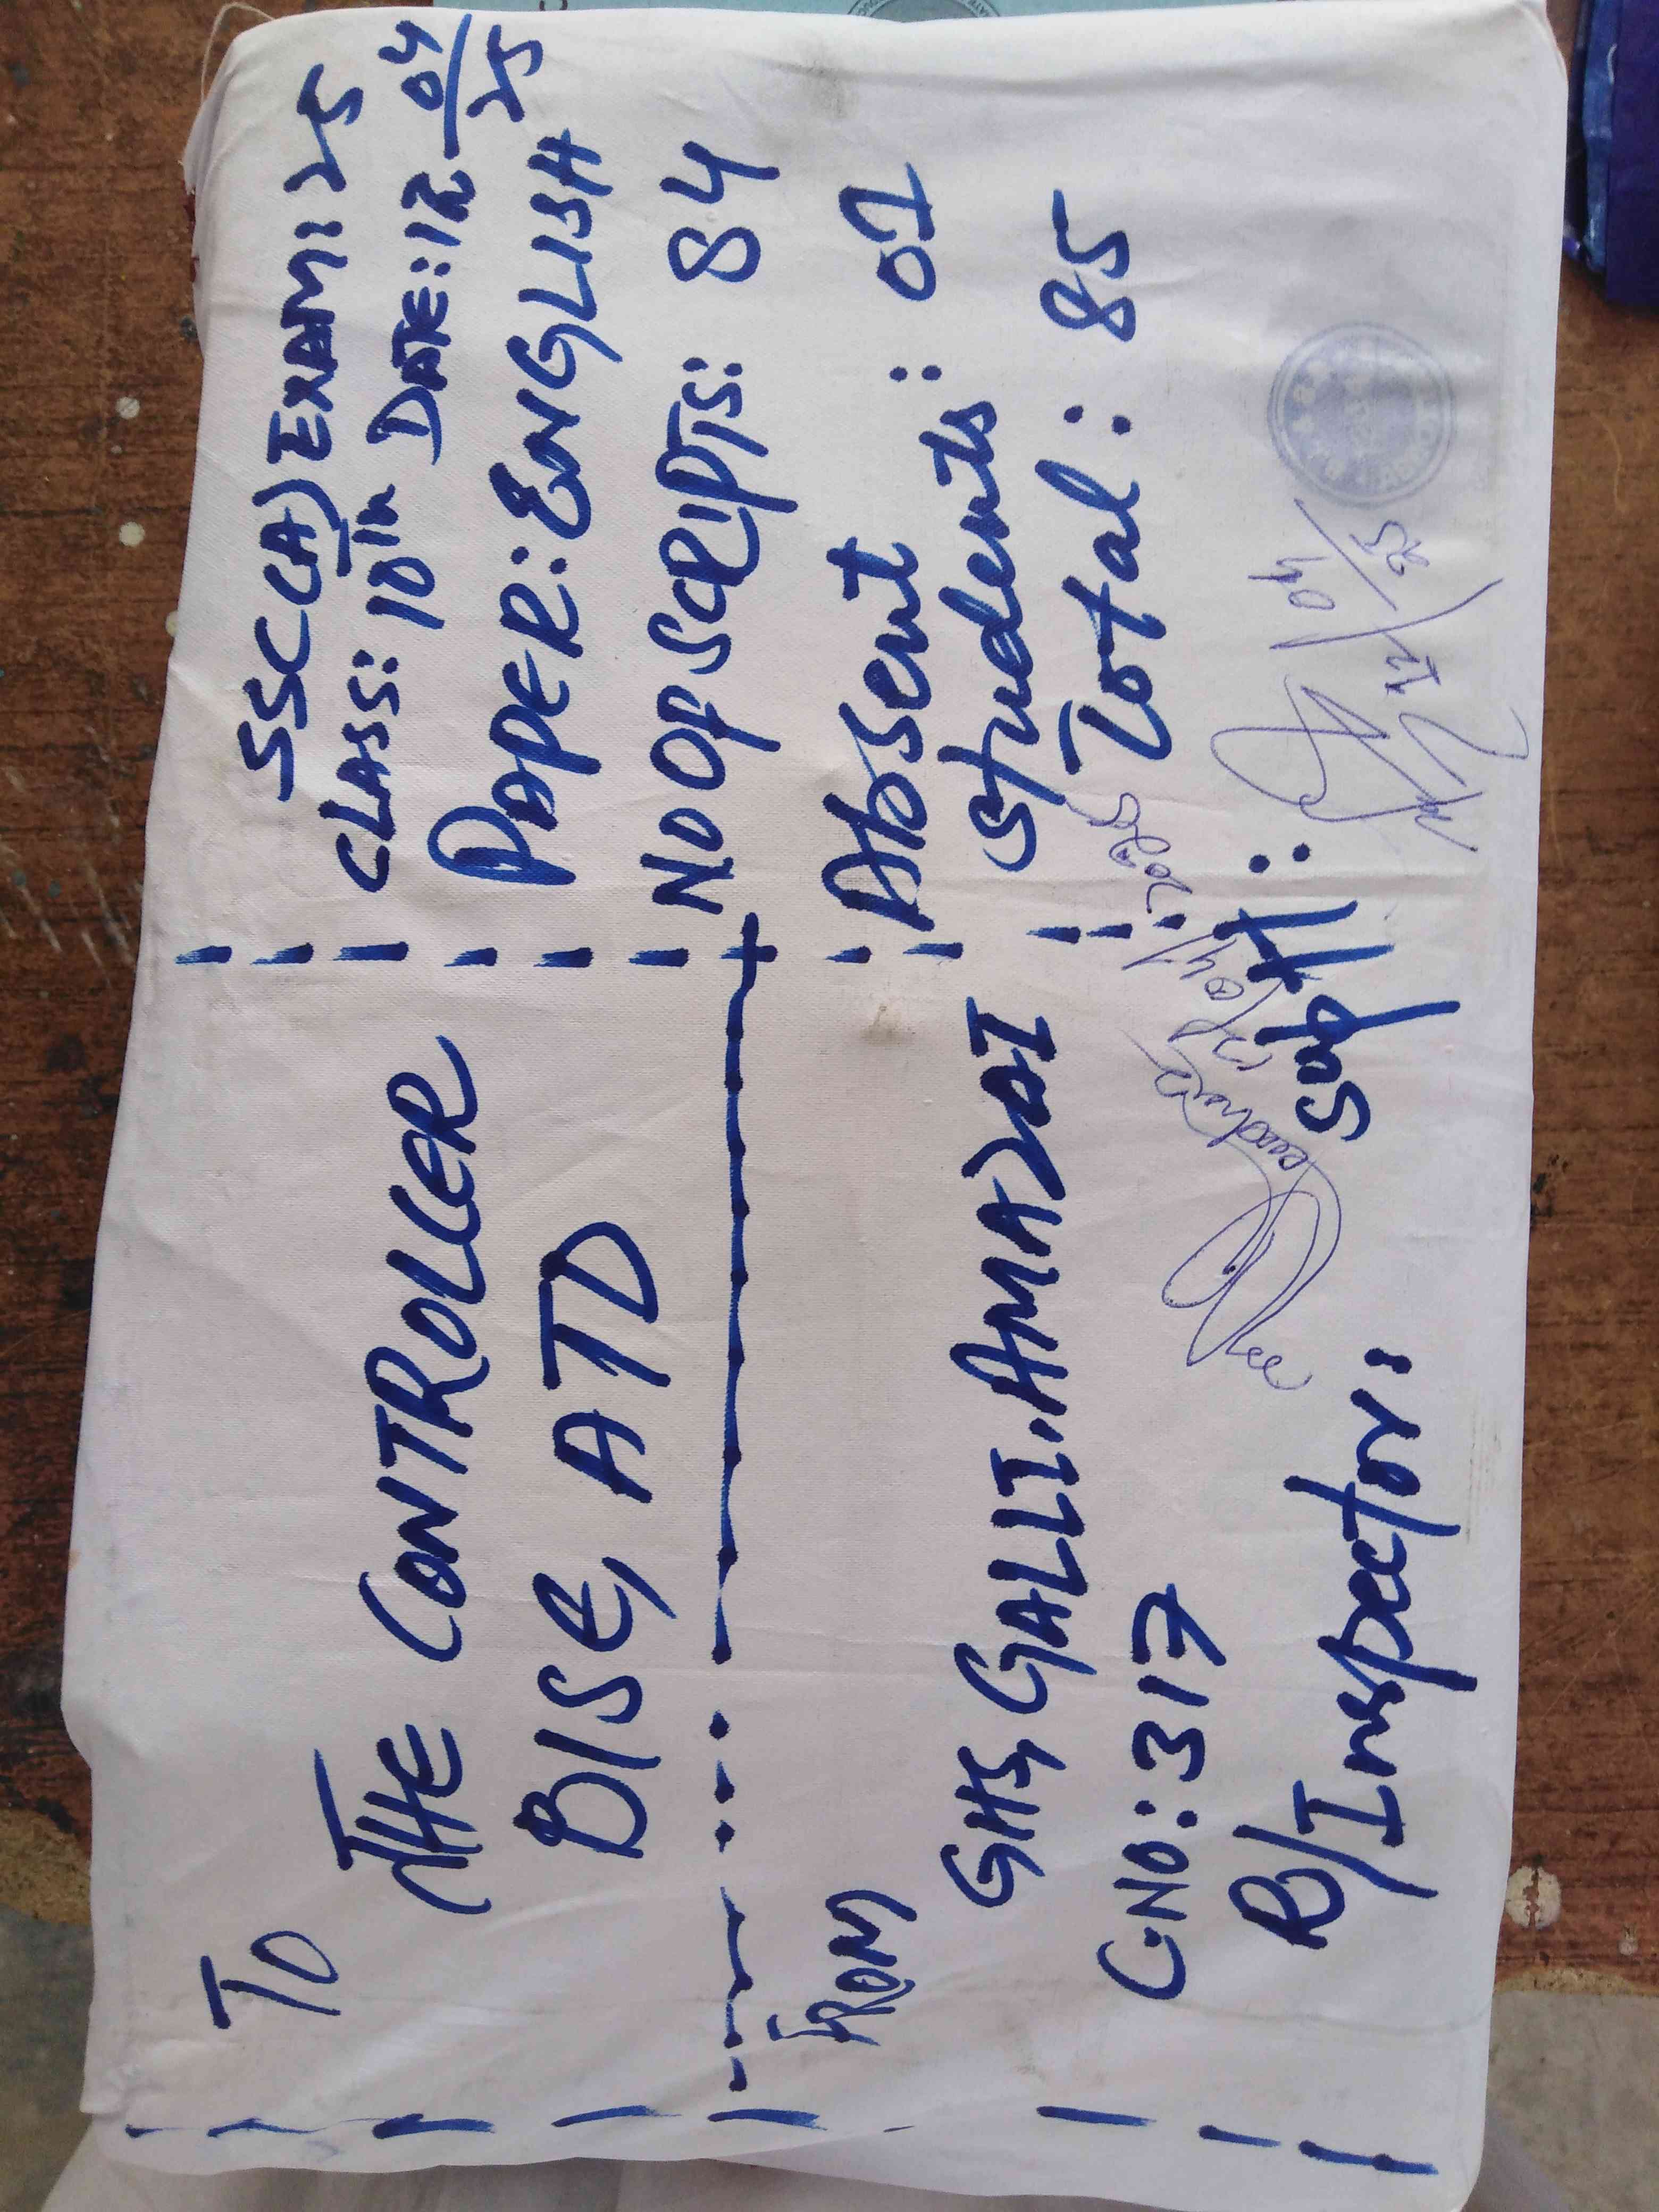 TO
THE CONTROLLER
BISE, ATD
SSC(A) EXAM: 25
CLASS: 10th DATE: 12-04/25
PAPER: ENGLISH
NO OF SCRIPTS: 84
FROM
GHS, GALLI. AMAZAI
C.NO: 317
R/Inspector:
Absent
students: 01
Total: 85
Supt:
04/25